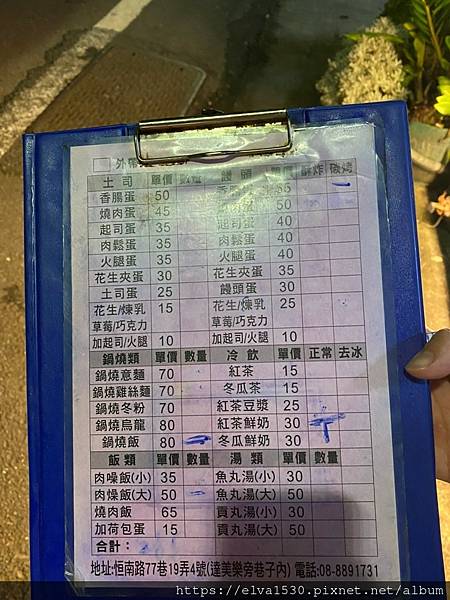 外帶
土司 單價 數量 饅頭 單價 酥炸 碳烤
香腸蛋 50 香腸蛋 55
燒肉蛋 45 50
起司蛋 35 起司蛋 40
肉鬆蛋 35 肉鬆蛋 40
火腿蛋 35 火腿蛋 40
花生夾蛋 30 花生夾蛋 35
土司蛋 25 饅頭蛋 30
花生/煉乳 15 花生/煉乳 25
草莓/巧克力 草莓/巧克力
加起司/火腿 10 加起司/火腿 10
鍋燒類 單價 數量 冷飲 單價 正常 去冰
鍋燒意麵 70 紅茶 15
鍋燒雞絲麵 70 冬瓜茶 15
鍋燒冬粉 70 紅茶豆漿 25
鍋燒烏龍 80 紅茶鮮奶 30
鍋燒飯 80 冬瓜鮮奶 30
飯類 單價 數量 湯類 單價 數量
肉燥飯(小) 35 魚丸湯(小) 30
肉燥飯(大) 50 魚丸湯(大) 50
燒肉飯 65 貢丸湯(小) 30
加荷包蛋 15 貢丸湯(大) 50
合計：
地址:恒南路77巷19弄4號(達美樂旁巷子內) 電話:08-8891731
https://elva1530.pixnet.net/album